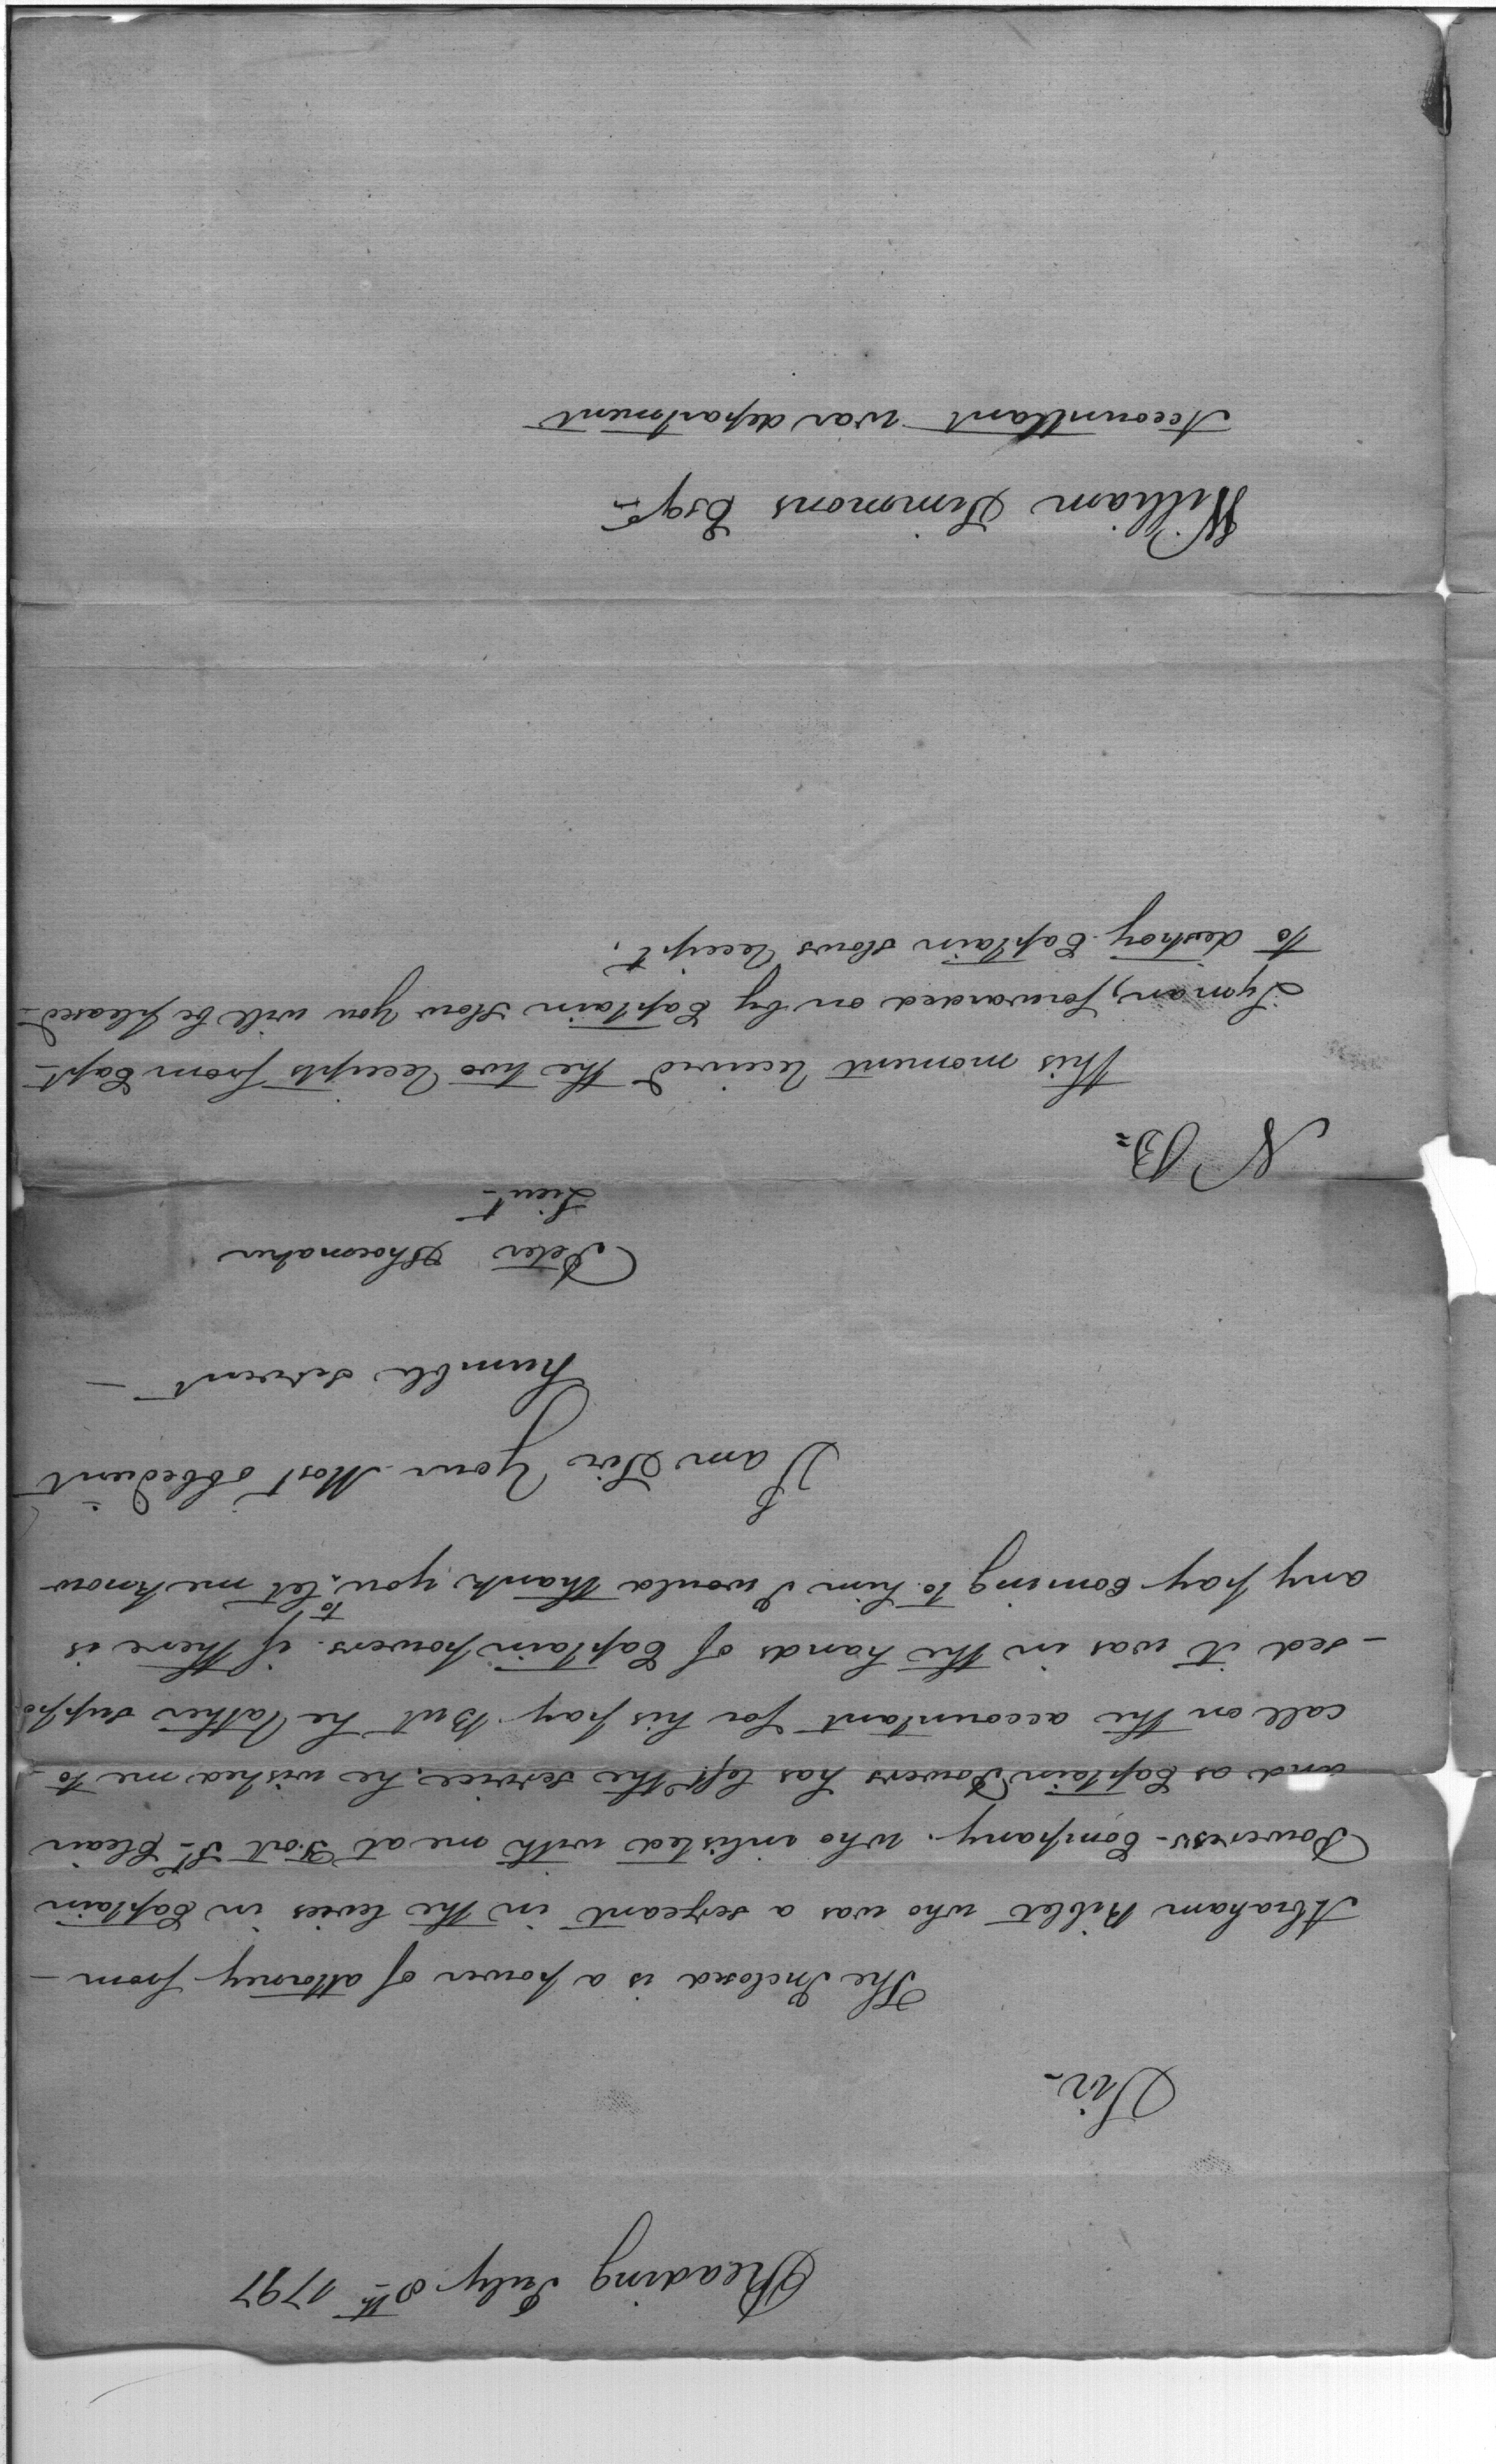 Reading July 8th 1797
Sir
The Inclosed is a power of attorney from -
Abraham Riblet who was a sergeant in the levies in Captain
Powerss Company. who inlisted with me at Fort St Clair
and as Captain Powers has left the service, he wished me to -
call on the accountant for his pay But he Rather suppo
- sed it was in the hands of Captain powers. if there is
any pay coming to him I would thank you to let me know
I am Sir Your Most obbedient
humble servent -
Peter Shoemaker
Lieut
N B=
This moment Received the two Receipts from Capt
Lyman, forwarded on by Captain Slow you will be pleased -
to destroy Captain Slows Receipt.
William Simmons Esqr
Accounttant war department